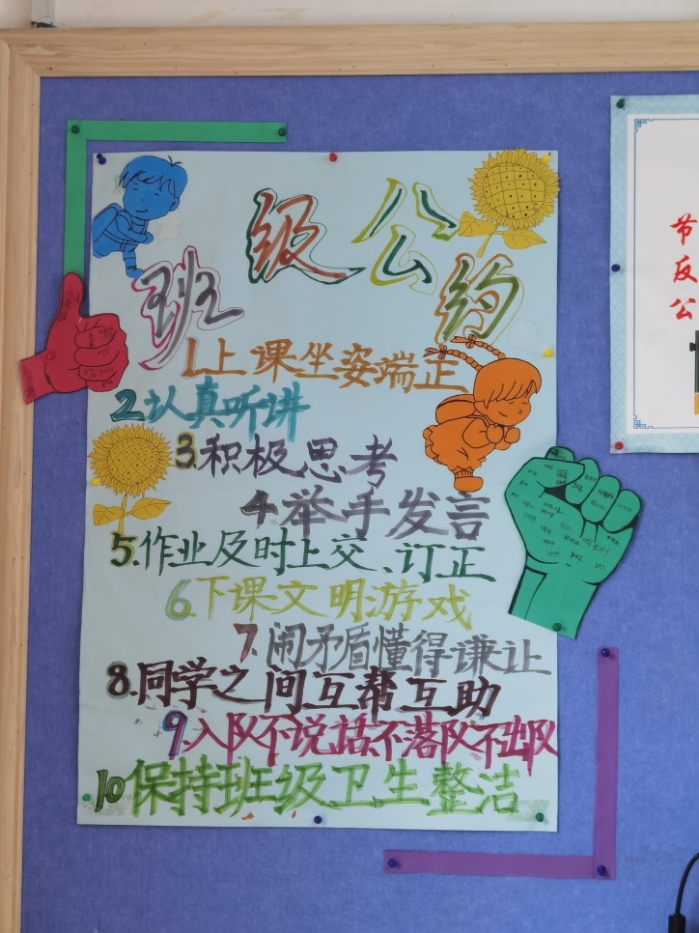 班级公约
1.上课坐姿端正
2.认真听讲
3.积极思考
4.举手发言
5.作业及时上交、订正
6.下课文明游戏
7.闹矛盾懂得谦让
8.同学之间互帮互助
9.入队不说话不落队不出队
10保持班级卫生整洁
节
反
公